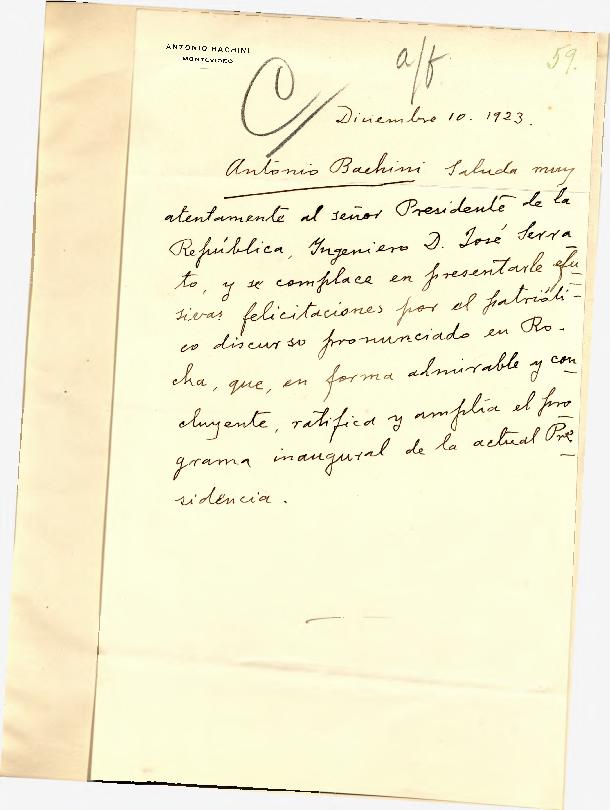 ANTONIO BACHINI
MONTEVIDEO
C/
a/f
59.
Diciembre 10. 1923.
Antonio Bachini saluda muy
atentamente al señor Presidente de la
República, Ingeniero D. José Serra-
to, y se complace en presentarle efu-
sivas felicitaciones por el patrióti-
co discurso pronunciado en Ro-
cha, que, en forma admirable y con-
cluyente, ratifica y amplía el pro-
grama inaugural de la actual Pre-
sidencia.